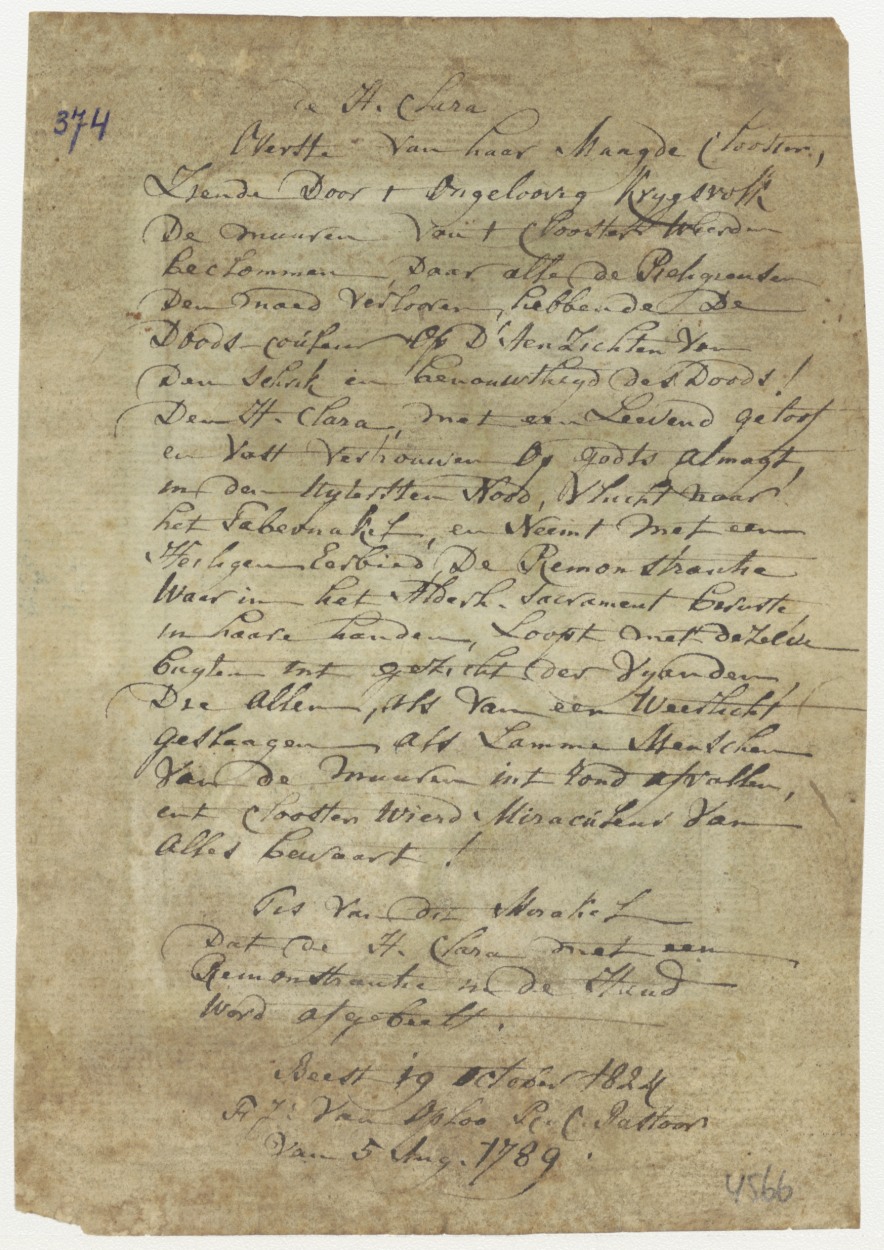 374
de H. Clara
Overste van haar Maagde Clooster,
Ziende Door t Ongeloovig Krygsvolk
De muuren van t Clooster Wierden
beclommen, Daar alle de Religieusen
Den moed Verlooren, hebbende De
Doods-couleur Op D'Aenzichten Van
Den Schrik en benouwtheyd des Doods!
Den H. Clara, met een Levend geloof
en Vast Vertrouwen Op godts almagt,
in den Uytersten Nood, Vlucht naar
het Tabernakel, en Neemt met een
Heiligen Eerbied, De Remonstrantie
Waar in het Alderh. Sacrament beruste,
in haare handen, Loopt met dezelve
buyten int gezicht der Vyanden,
Die allen, als Van een Weerlicht
geslaagen, als Lamme Menschen
Van de muuren int rond afvallen,
ent Clooster Wierd Miraculeus Van
Alles bewaart!
Tis Van dit Mirakel
Dat de H. Clara met een
Remonstrantie in de Hand
Word afgebeelt.
Beest 19 october 1824
Van Oploo R. C. Pastoor
Van 5 Aug. 1789.
4566